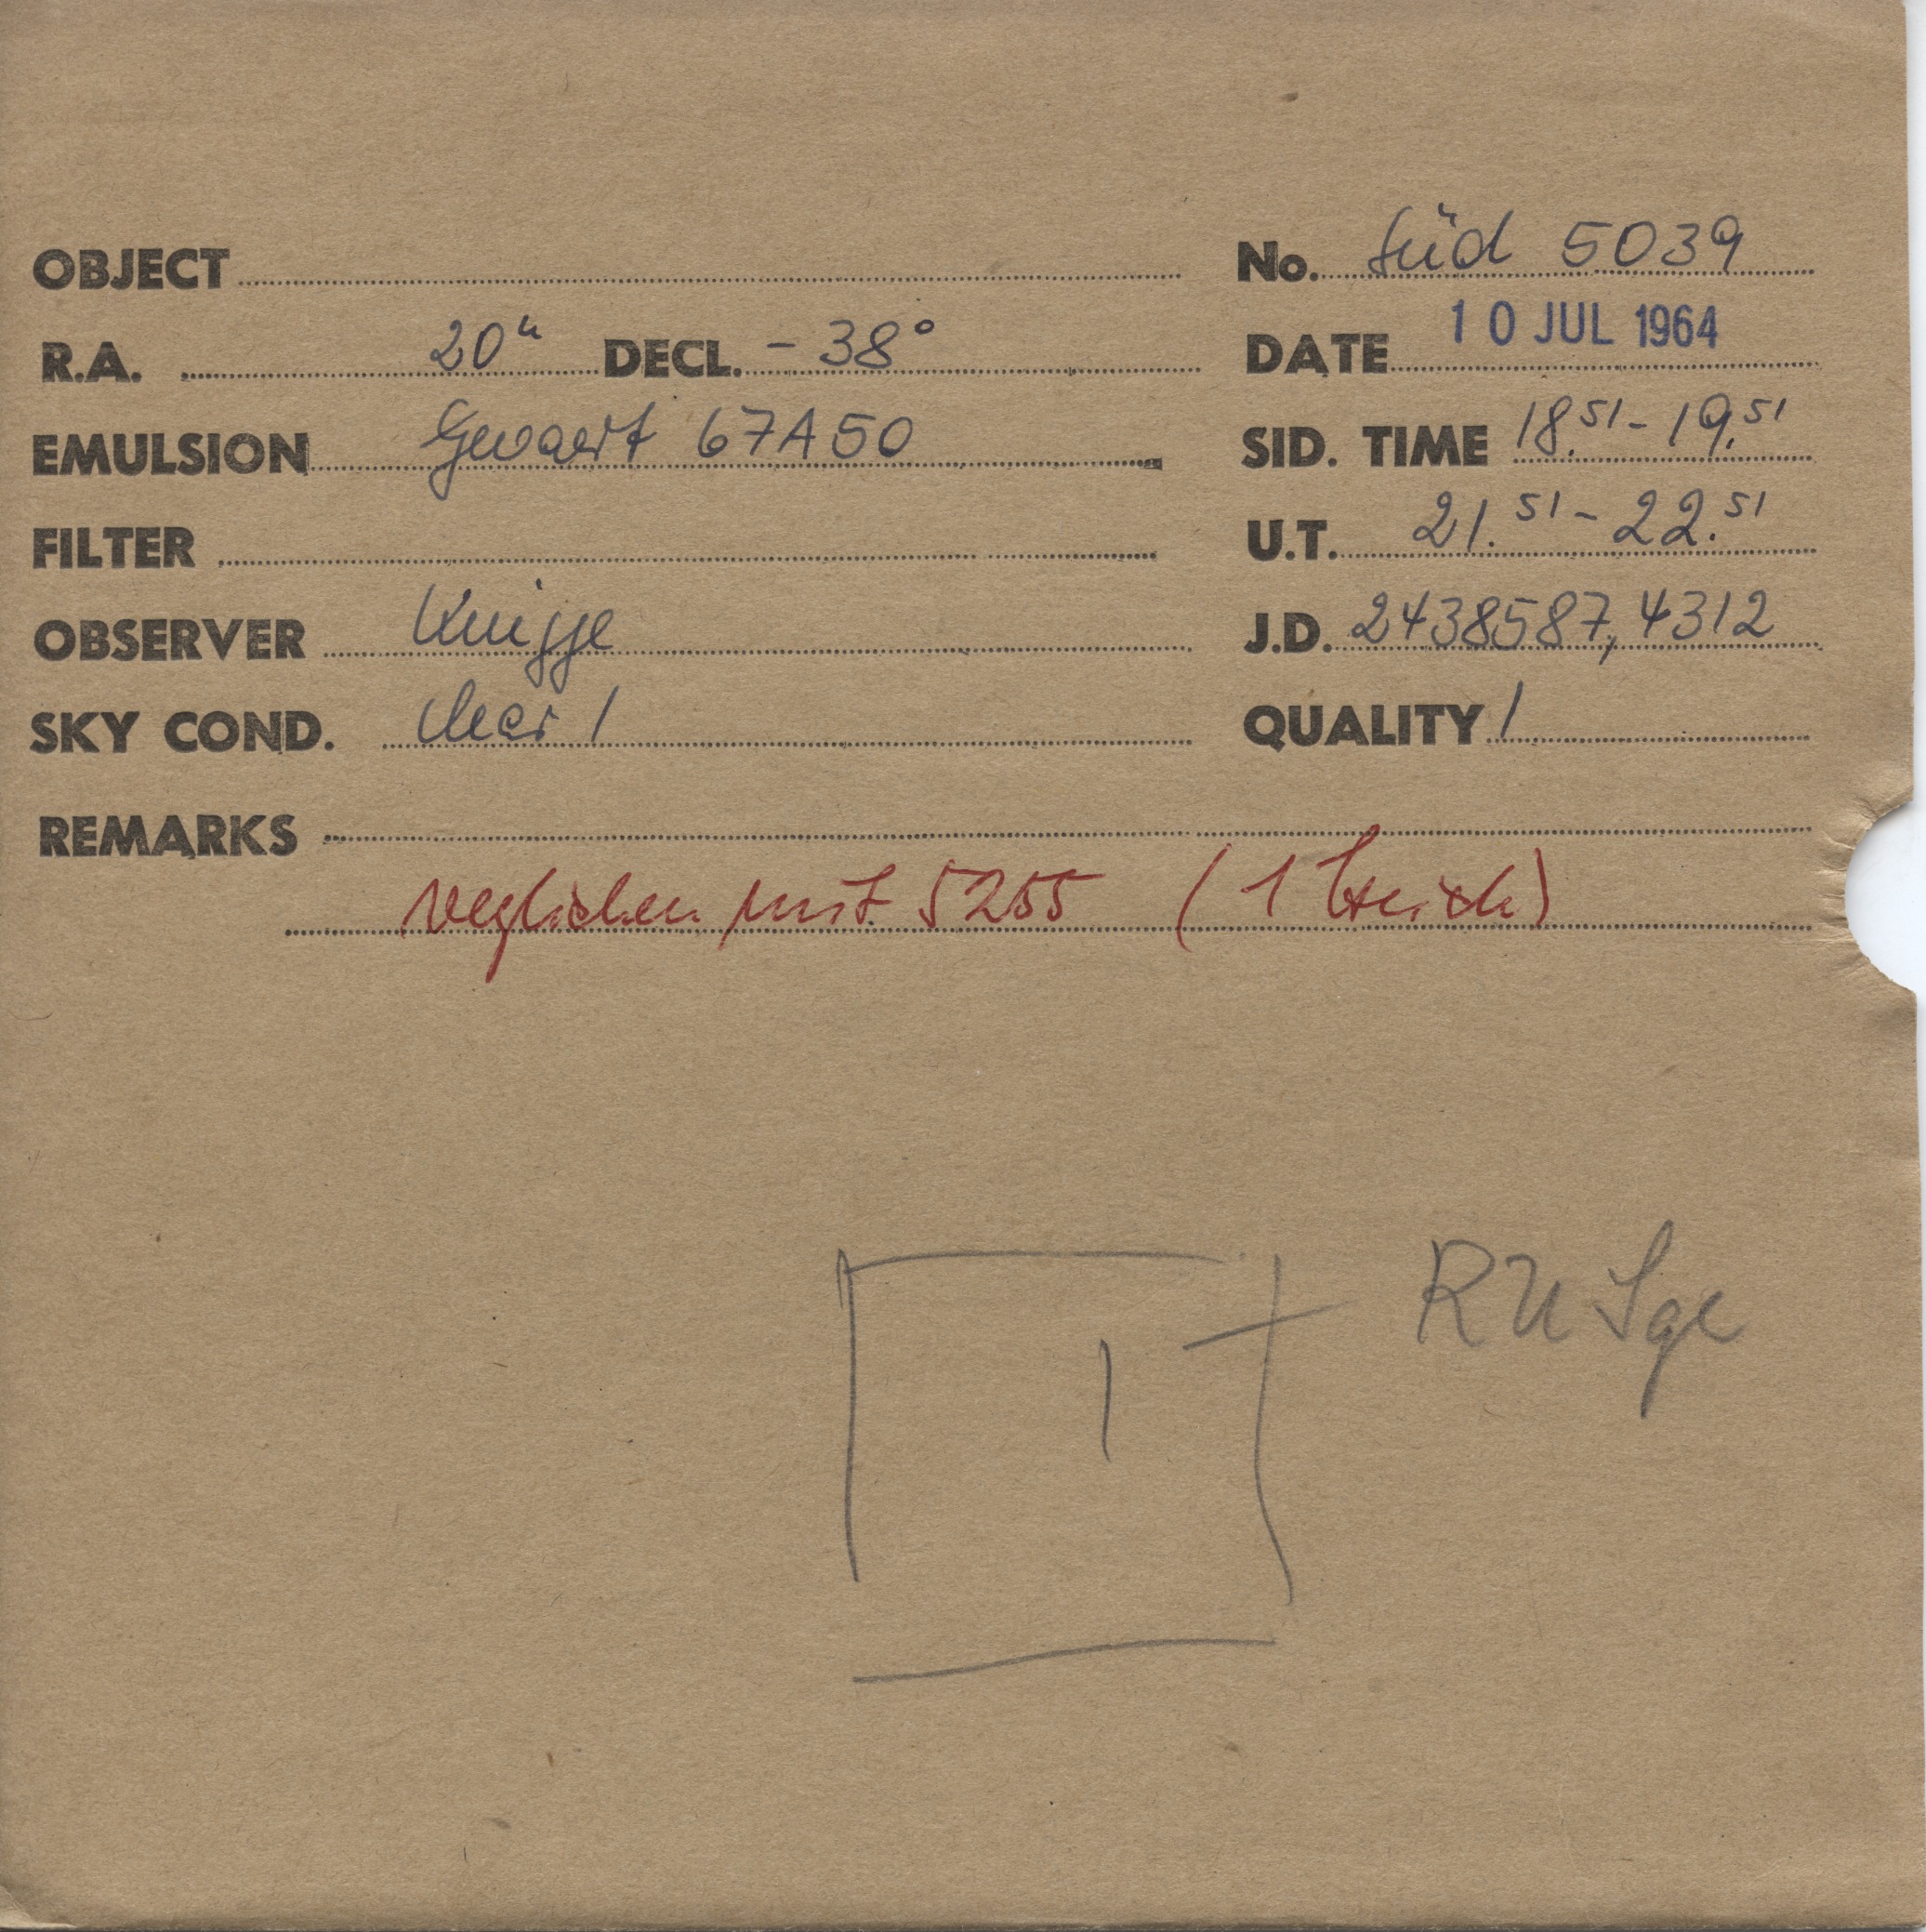 OBJECT
No. Süd 5039
R.A. 20h DECL. - 38°
DATE 10 JUL 1964
EMULSION Gevaert 67A50
SID. TIME 18.51 - 19.51
FILTER
U.T. 21.51 - 22.51
OBSERVER Knigge
J.D. 2438587,4312
SKY COND. clear 1
QUALITY 1
REMARKS
verglichen mit 5255 (1 Strich)
RU Sge